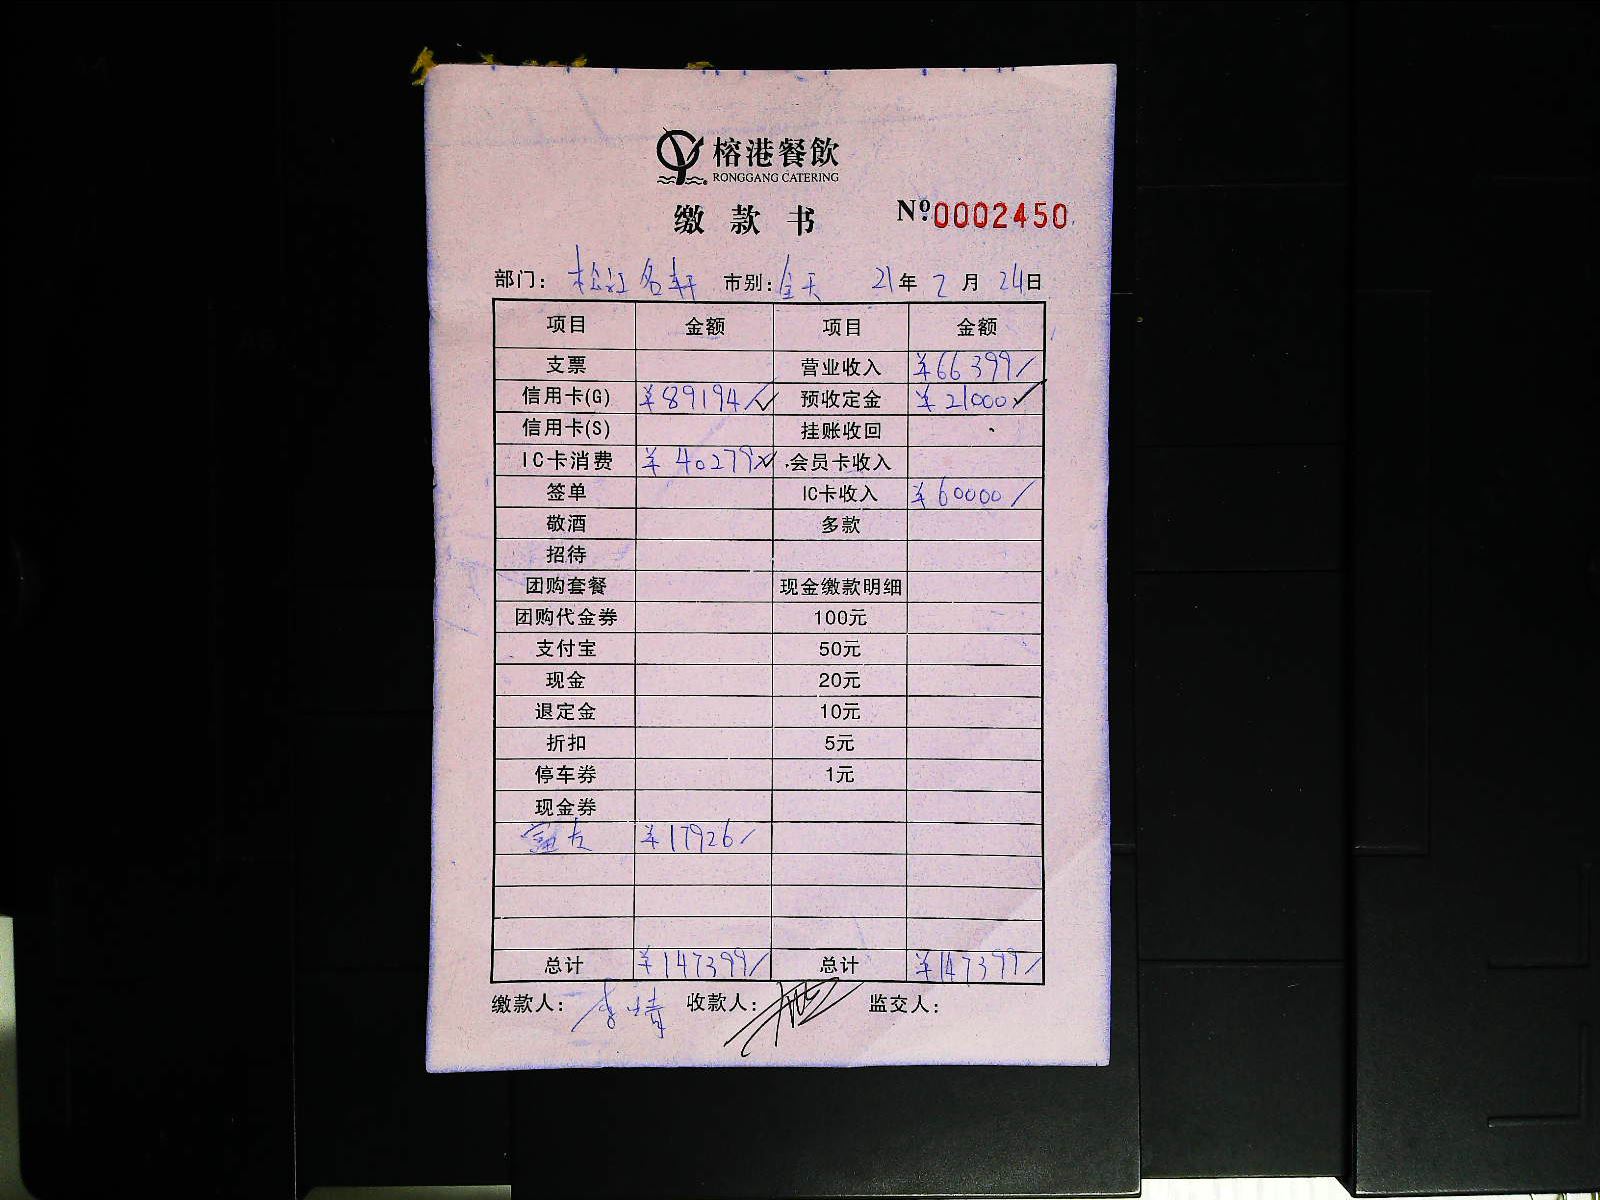 榕港餐飲
RONGGANG CATERING
缴款书 №0002450
部门：松江名轩 市别：全天 21年2月24日
项目 金额 项目 金额
支票 营业收入 ¥66399
信用卡(G) ¥89194 预收定金 ¥21000
信用卡(S) 挂账收回
IC卡消费 ¥40279 会员卡收入
签单 IC卡收入 ¥60000
敬酒 多款
招待
团购套餐 现金缴款明细
团购代金券 100元
支付宝 50元
现金 20元
退定金 10元
折扣 5元
停车券 1元
现金券
¥17926
总计 ¥147399 总计 ¥147399
缴款人：李婧 收款人： 监交人：